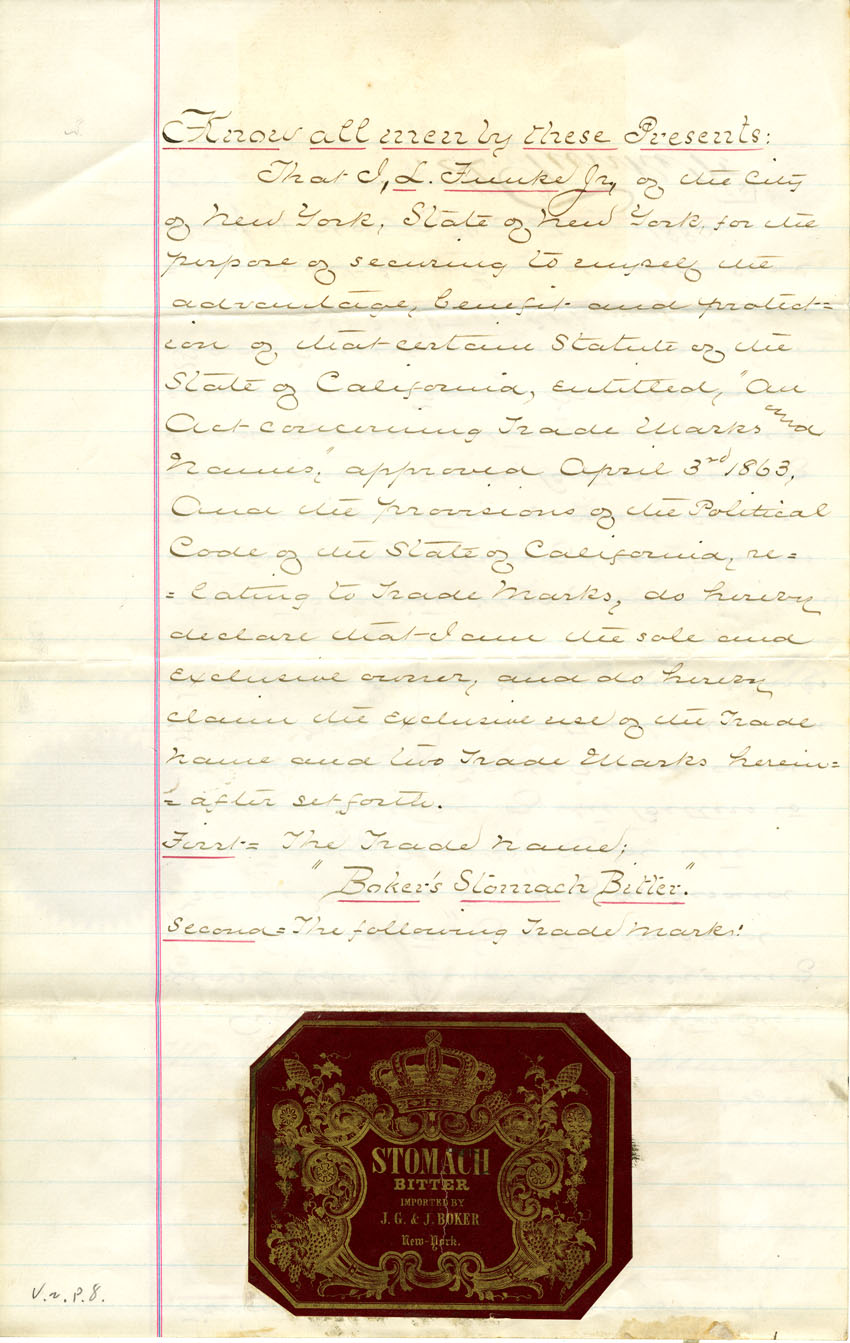 Know all men by these Presents:
That I, L. Funke Jr, of the City
of New York, State of New York, for the
purpose of securing to myself the
advantage, benefit and protect=
ion of that certain Statute of the
State of California, entitled, "An
Act concerning Trade Marks and
Names," approved April 3rd 1863,
And the provisions of the Political
Code of the State of California, re=
=lating to Trade Marks, do hereby
declare that I am the sole and
exclusive owner, and do hereby
claim the exclusive use of the Trade
Name and two Trade Marks herein=
=after set forth.
First= The Trade Name;
"Boker's Stomach Bitter."
Second= The following Trade Marks:
STOMACH
BITTER
IMPORTED BY
J. G. & J. BOKER
New-York.
V. 2. P. 8.